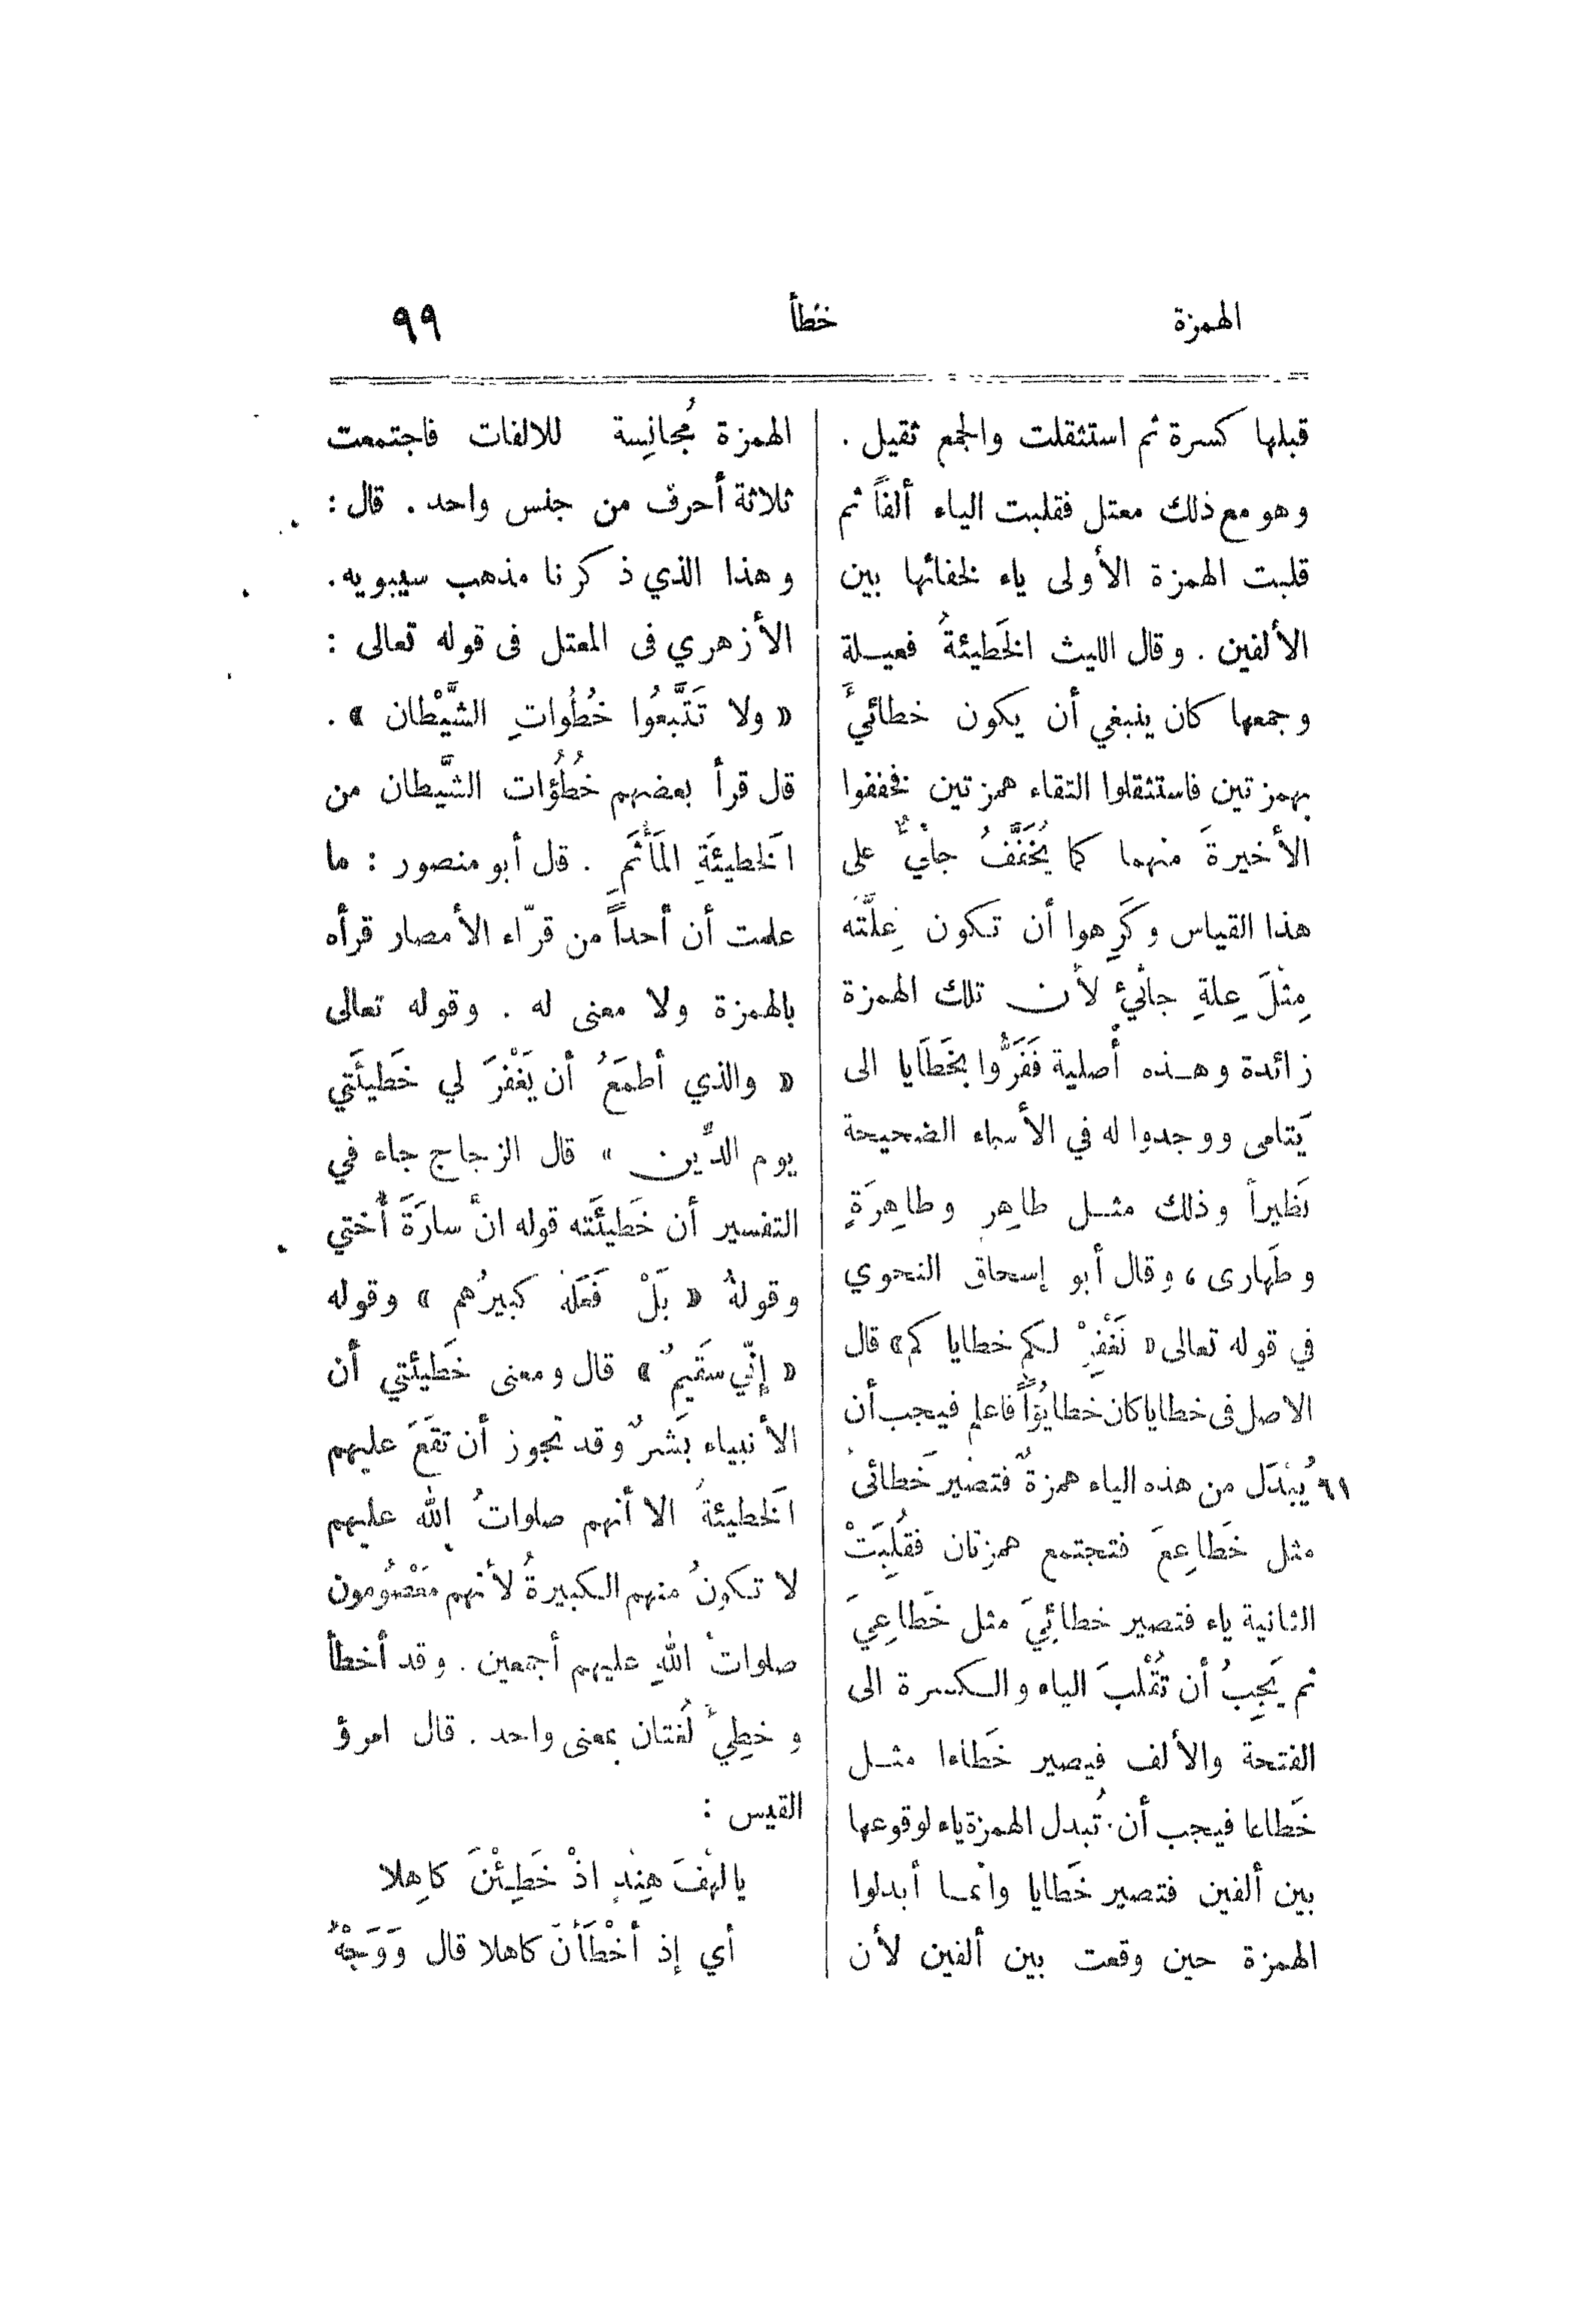 الهمزة خطأ ٩٩
قبلها كسرة ثم استثقلت والجمع ثقيل .
وهو مع ذلك معتل فقلبت الياء ألفاً ثم
قلبت الهمزة الأولى ياء لخفائها بين
الألفين . وقال الليث الخَطيئةُ فعيلة
وجمعها كان ينبغي أن يكون خطائيَّ
بهمزتين فاستثقلوا التقاء همزتين فخففوا
الأخيرةَ منهما كما يُخَفَّفُ جائيٌ على
هذا القياس وكَرِهوا أن تكون عِلَّتَه
مِثْلَ عِلةِ جائيْ لأن تلك الهمزة
زائدة وهذه أصلية فَفَرُّوا بخَطَايا الى
يَتامى ووجدوا له في الأسماء الصحيحة
نَظيراً وذلك مثل طاهِر وطاهِرَةٍ
وطَهارى ، وقال أبو إسحاق النحوي
في قوله تعالى « نَغْفِرْ لكم خطاياكم » قال
الاصل فى خطايا كان خطايُؤاً فاعلم فيجب أن
٦١ يُبْدَل من هذه الياء همزةٌ فتصير خَطائىُ
مثل خَطاعِعَ فتجتمع همزتان فقُلِبَتْ
الثانية ياء فتصير خطائِيَ مثل خَطاعِيَ
ثم يَجِبُ أن تُقْلَبَ الياء والكسرة الى
الفتحة والألف فيصير خَطاءا مثل
خَطاعا فيجب أن تُبدل الهمزة ياء لوقوعها
بين ألفين فتصير خَطايا وانما أبدلوا
الهمزة حين وقعت بين ألفين لأن
الهمزة مُجانِسة للالفات فاجتمعت
ثلاثة أحرف من جنس واحد . قال :
وهذا الذي ذكرنا مذهب سيبويه .
الأزهري فى المعتل فى قوله تعالى :
« ولا تَتَّبعُوا خُطُواتِ الشَّيْطان » .
قال قرأ بعضهم خُطُؤات الشَّيطان من
الخَطيئَةِ المَأْثَمِ . قال أبو منصور : ما
علمت أن أحداً من قرّاء الأمصار قرأه
بالهمزة ولا معنى له . وقوله تعالى
« والذي أطمَعُ أن يَغْفرَ لي خَطيئَتي
يوم الدِّين » قال الزجاج جاء في
التفسير أن خَطيئَته قوله انَّ سارَةَ أُختي
وقولهُ « بَلْ فَعَلهُ كبيرُهم » وقوله
« إنّي سَقيمٌ » قال ومعنى خَطيئتي أن
الأنبياء بَشَرٌ وقد تجوز أن تقَعَ عليهم
الخَطيئةُ الا أنهم صلواتُ الله عليهم
لا تكونُ منهم الكبيرةُ لأنهم مَعْصُومون
صلواتُ اللهِ عليهم أجمعين . وقد أخطأ
وخطِئَ لُغتان بمعنى واحد . قال امرؤ
القيس :
يا لهْفَ هِنْدٍ اذْ خَطِئْنَ كاهِلا
أي إذ أخْطَأْنَ كاهلا قال وَوَجْهٌ